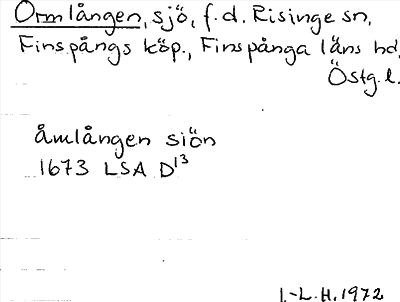 Ormlången, sjö, f.d. Risinge sn,
Finspångs köp., Finspånga läns hd,
Östg.l.
åmlången siön
1673 LSA D13
I.-L.H. 1972